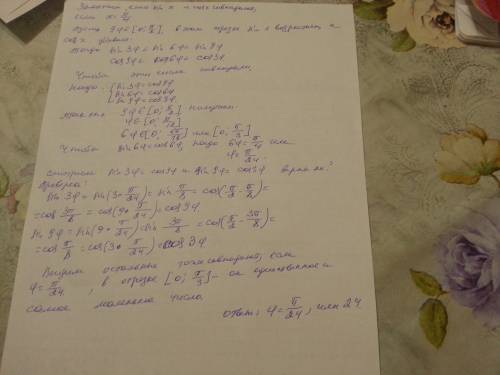 Заметим, что sin x и cos x совпадают,
если x = π/4
Пусть 9φ∈[0; π/2], в этом отрезке sin x возрастает, а
cos x убывает.
Тогда sin 3φ < sin 6φ < sin 9φ
cos 9φ < cos 6φ < cos 3φ
Чтобы эти числа совпадали,
надо: { sin 3φ = cos 9φ
sin 6φ = cos 6φ
sin 9φ = cos 3φ
9φ∈[0; π/2] получим:
φ∈[0; π/18]
6φ∈[0; 6π/18] или [0; π/3]
Чтобы sin 6φ = cos 6φ, надо 6φ = π/4 или
φ = π/24.
Смотрим sin 3φ = cos 9φ и sin 9φ = cos 3φ верно ли?
Проверка:
sin 3φ = sin(3·π/24) = sin π/8 = cos(π/2 - π/8) =
= cos 3π/8 = cos(9·π/24) = cos 9φ
sin 9φ = sin(9·π/24) = sin 3π/8 = cos(π/2 - 3π/8) =
= cos π/8 = cos(3·π/24) = cos 3φ
Видим остальные тоже совпадают, если
φ = π/24, в отрезке [0; π/3] - он единственное и
самое маленькое число.
ответ: φ = π/24, или 24